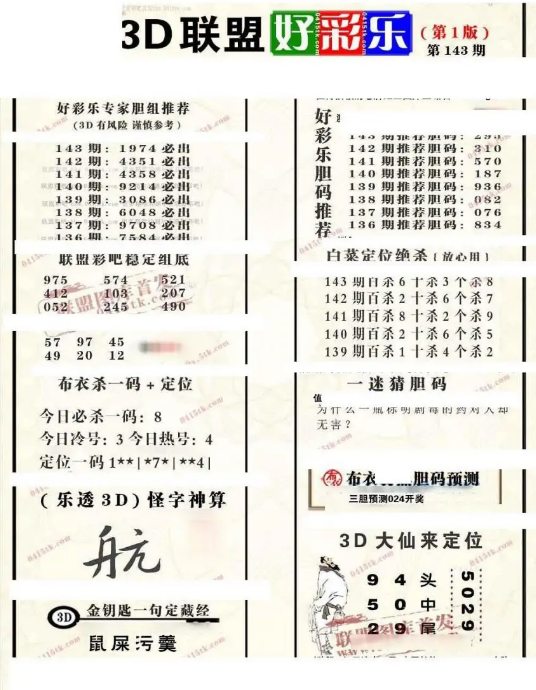 3D联盟好彩乐(第1版)
第143期
好彩乐专家胆组推荐
(3D有风险 谨慎参考)
143期:1974必出
142期:4351必出
141期:4358必出
140期:9214必出
139期:3086必出
138期:6048必出
137期:9708必出
136期:7584必出
联盟彩吧稳定组底
975 574 521
412 103 207
052 245 490
57 97 45
49 20 12
布衣杀一码+定位
今日必杀一码:8
今日冷号:3 今日热号:4
定位一码 1**|*7*|**4|
(乐透3D)怪字神算
航
3D 金钥匙一句定藏经
鼠屎污羹
好彩乐胆码推荐
143期推荐胆码:295
142期推荐胆码:310
141期推荐胆码:570
140期推荐胆码:187
139期推荐胆码:936
138期推荐胆码:082
137期推荐胆码:076
136期推荐胆码:834
白菜定位绝杀(放心用)
143期百杀6十杀3个杀8
142期百杀2十杀6个杀7
141期百杀8十杀2个杀9
140期百杀2十杀6个杀5
139期百杀1十杀4个杀2
一迷猜胆码
值
为什么一瓶标明剧毒的药对人却
无害?
布衣 胆码预测
三胆预测024开奖
3D大仙来定位
9 4 头
5 0 中
2 9 尾
5029